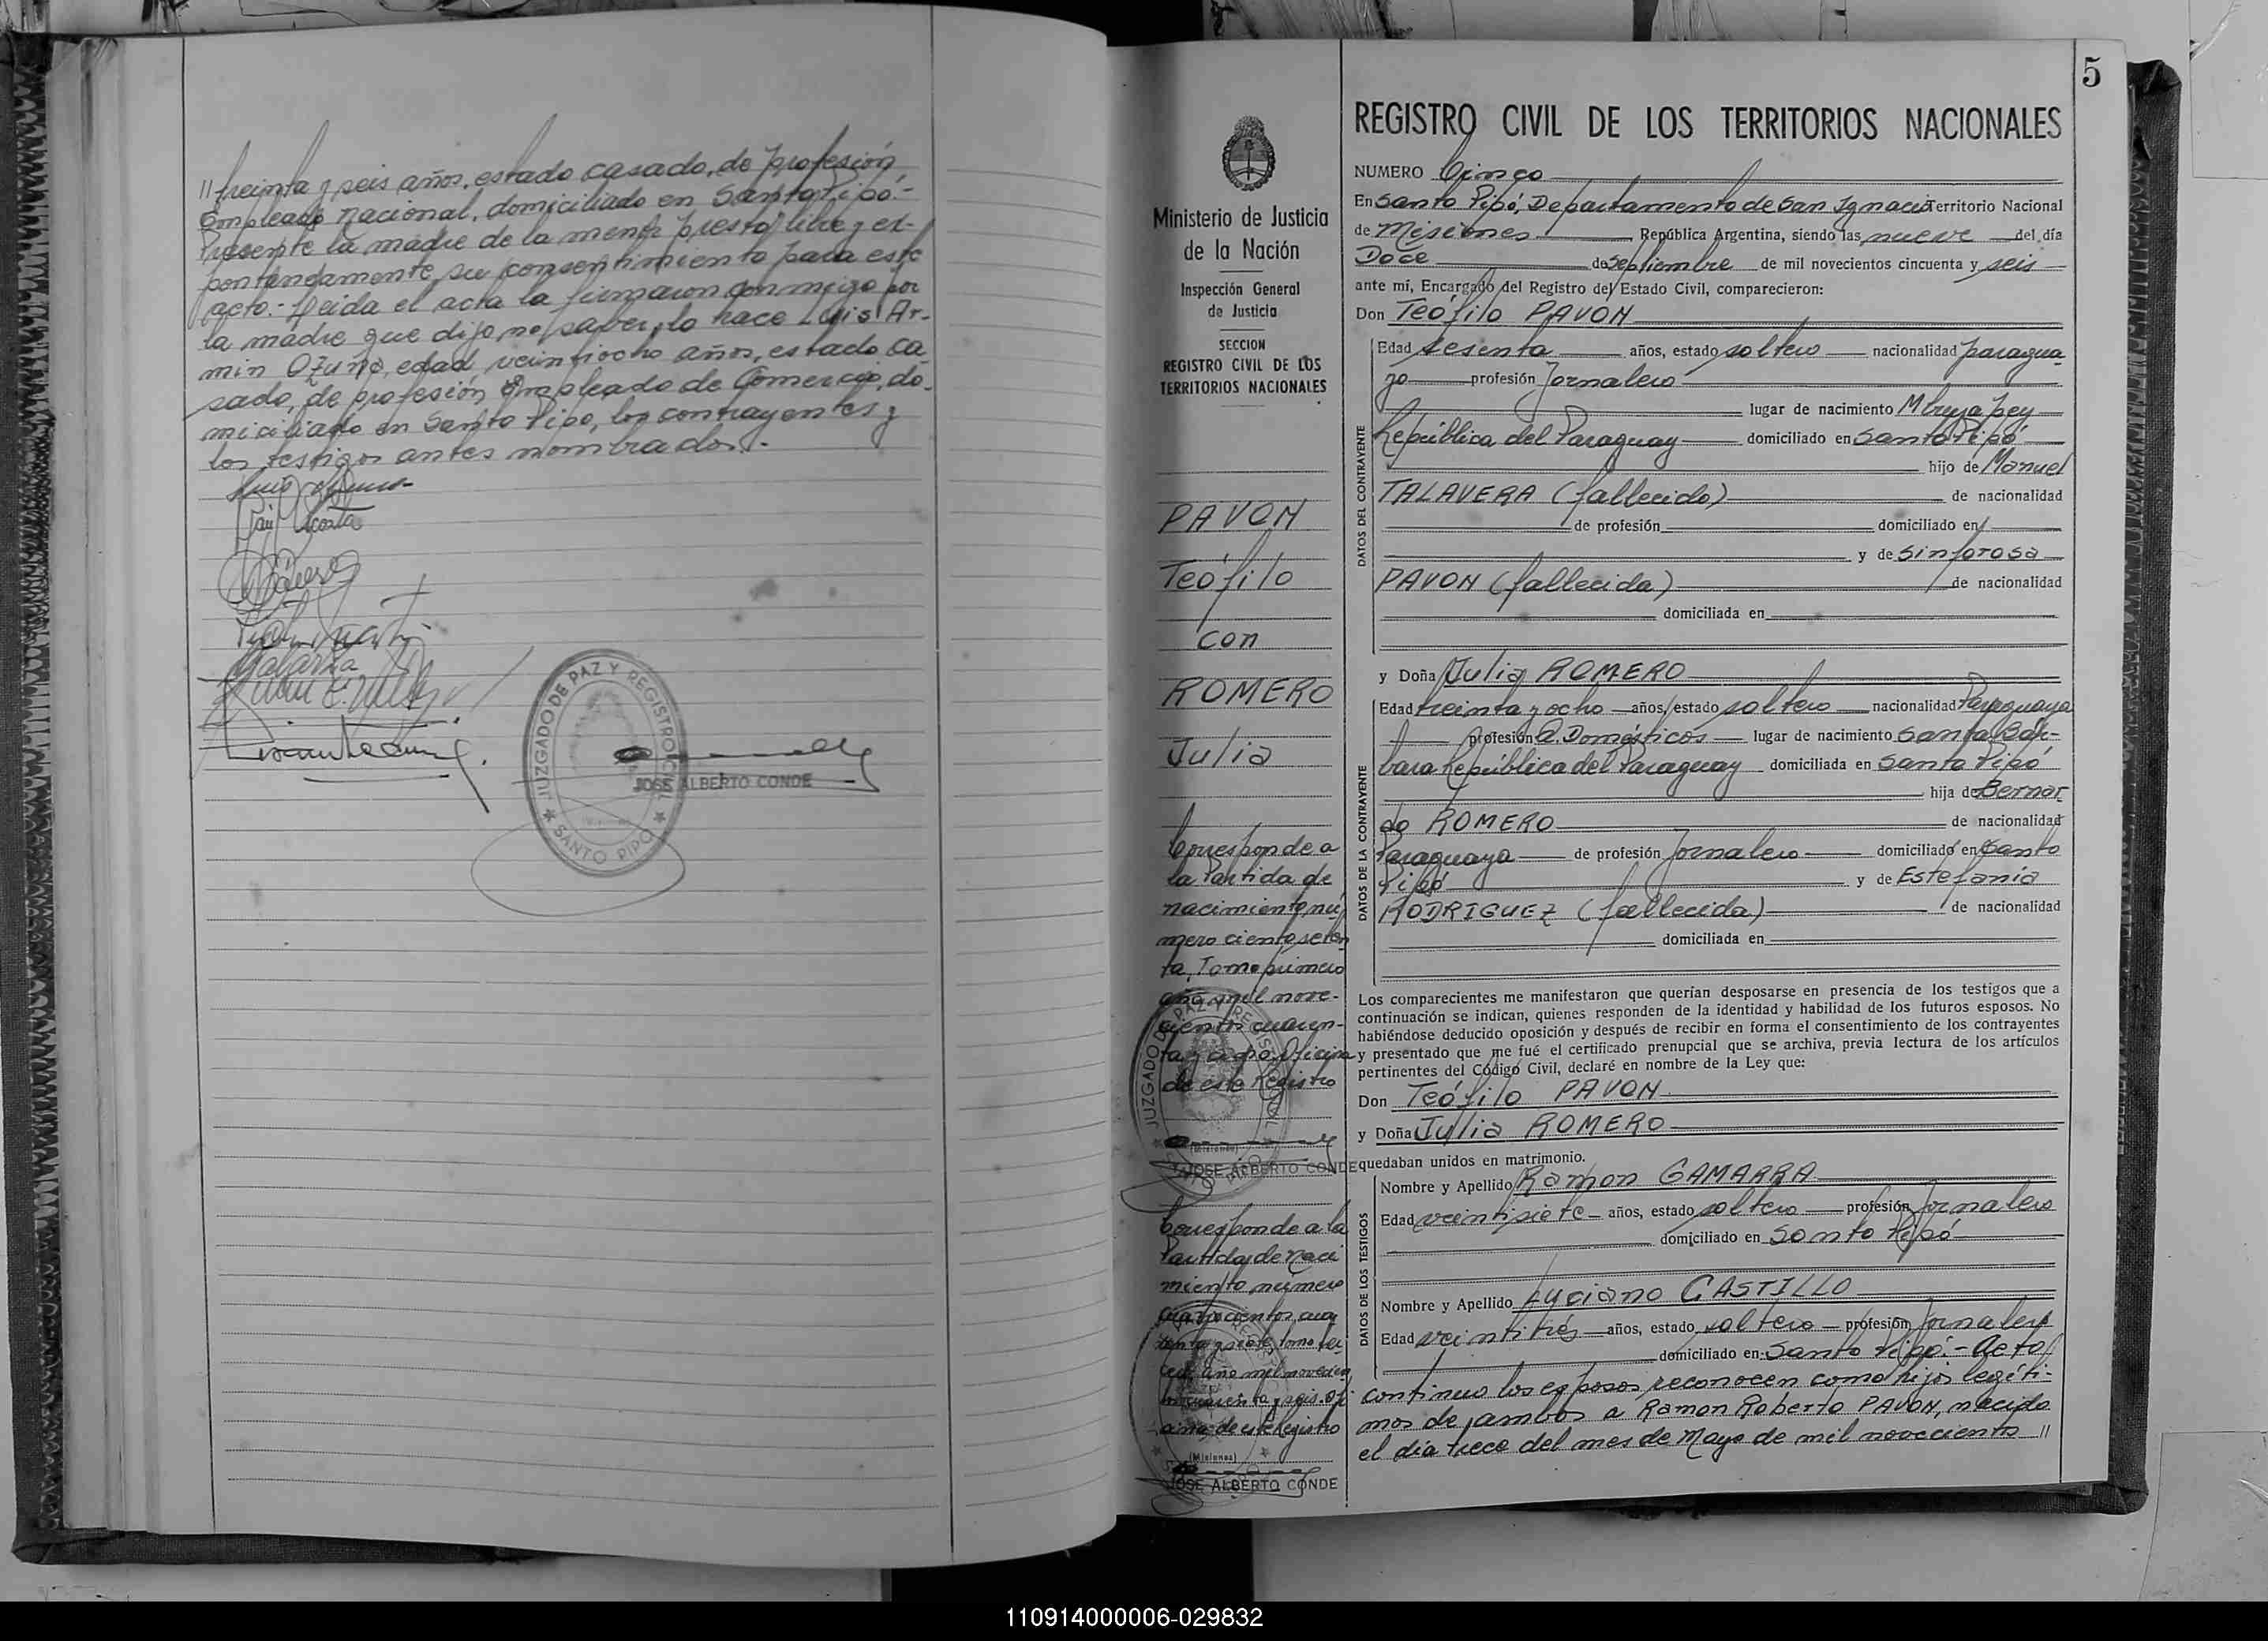 // treinta y seis años, estado casado, de profesión
Empleado nacional, domiciliado en Santo Pipó.-
Presente la madre de la menor prestó libre y es-
pontáneamente, su consentimiento para este
acto.- Leida el acta la firmaron conmigo por
la madre que dijo no saber, lo hace Luis Ar-
min Ozuna, edad veintiocho años, estado ca-
sado, de profesión Empleado de Comercio, do-
miciliado en Santo Pipó, los contrayentes y
los testigos antes nombrados.-
Acosta
JUZGADO DE PAZ Y REGISTRO CIVIL
SANTO PIPO
JOSE ALBERTO CONDE
Ministerio de Justicia
de la Nación
Inspección General
de Justicia
SECCION
REGISTRO CIVIL DE LOS
TERRITORIOS NACIONALES
PAVON
Teófilo
con
ROMERO
Julia
Corresponde a
la Partida de
nacimiento nú
mero ciento seten
ta, Tomo primero
año mil nove-
cientos cuaren-
ta y ocho. Oficina
de este Registro
JOSE ALBERTO CONDE
Corresponde a la
Partida de naci
miento número
cuatrocientos cua
renta y siete, tomo ter-
cero año mil novecien
tos cuarenta y seis. Ofi
cina de este Registro
(Misiones)
JOSE ALBERTO CONDE
5
REGISTRO CIVIL DE LOS TERRITORIOS NACIONALES
NUMERO Cinco
En Santo Pipó, Departamento de San Ignacio Territorio Nacional
de Misiones República Argentina, siendo las nueve del día
Doce de Septiembre de mil novecientos cincuenta y seis
ante mí, Encargado del Registro del Estado Civil, comparecieron:
Don Teófilo PAVON
DATOS DEL CONTRAYENTE
Edad sesenta años, estado soltero nacionalidad paragua
yo profesión Jornalero
lugar de nacimiento Mbuyapey
República del Paraguay domiciliado en Santo Pipó
hijo de Manuel
TALAVERA (fallecido) de nacionalidad
de profesión domiciliado en
y de Sinforosa
PAVON (fallecida) de nacionalidad
domiciliada en
y Doña Julia ROMERO
DATOS DE LA CONTRAYENTE
Edad treinta y ocho años, estado soltero nacionalidad Paraguaya
profesión Q. Domésticos lugar de nacimiento Santa Bár-
bara República del Paraguay domiciliada en Santo Pipó
hija de Bernar
do ROMERO de nacionalidad
Paraguaya de profesión Jornalero domiciliado en Santo
Pipó y de Estefania
RODRIGUEZ (fallecida) de nacionalidad
domiciliada en
Los comparecientes me manifestaron que querían desposarse en presencia de los testigos que a
continuación se indican, quienes responden de la identidad y habilidad de los futuros esposos. No
habiéndose deducido oposición y después de recibir en forma el consentimiento de los contrayentes
y presentado que me fué el certificado prenupcial que se archiva, previa lectura de los artículos
pertinentes del Código Civil, declaré en nombre de la Ley que:
Don Teófilo PAVON
y Doña Julia ROMERO
quedaban unidos en matrimonio.
DATOS DE LOS TESTIGOS
Nombre y Apellido Ramon GAMARRA
Edad veintisiete años, estado soltero profesión Jornalero
domiciliado en Santo Pipó
Nombre y Apellido Luciano CASTILLO
Edad veintitrés años, estado soltero profesión Jornalero
domiciliado en Santo Pipó.- Acto
continuo los esposos reconocen como hijos legíti-
mos de ambos a Ramon Roberto PAVON, nacido
el día trece del mes de Mayo de mil novecientos //
110914000006-029832